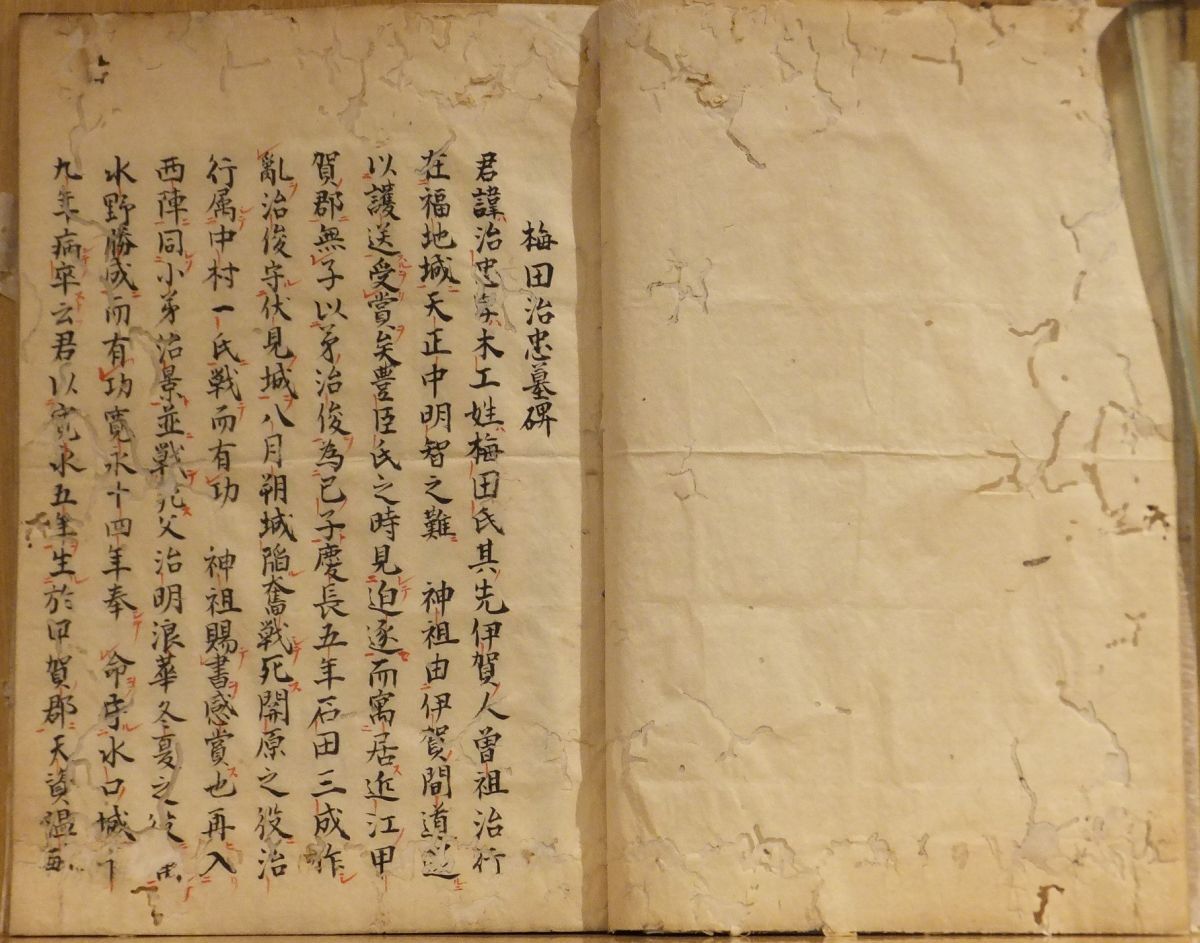 梅田治忠墓碑
君諱治忠字木工姓梅田氏其先伊賀人曽祖治行
在福地城天正中明智之難　神祖由伊賀間道
以護送受賞矣豊臣氏之時見迫逐而寓居近江甲
賀郡無子以弟治俊為已子慶長五年石田三成作
亂治俊守伏見城八月朔城陷奮戦死関原之役治
行属中村一氏戦而有功　神祖賜書感賞也再入
西陣同小弟治景並戦死父治明浪華冬夏之役
水野勝成而有功寛永十四年奉　命守水口城十
九年病卒云君以寛永五年生於甲賀郡天資温